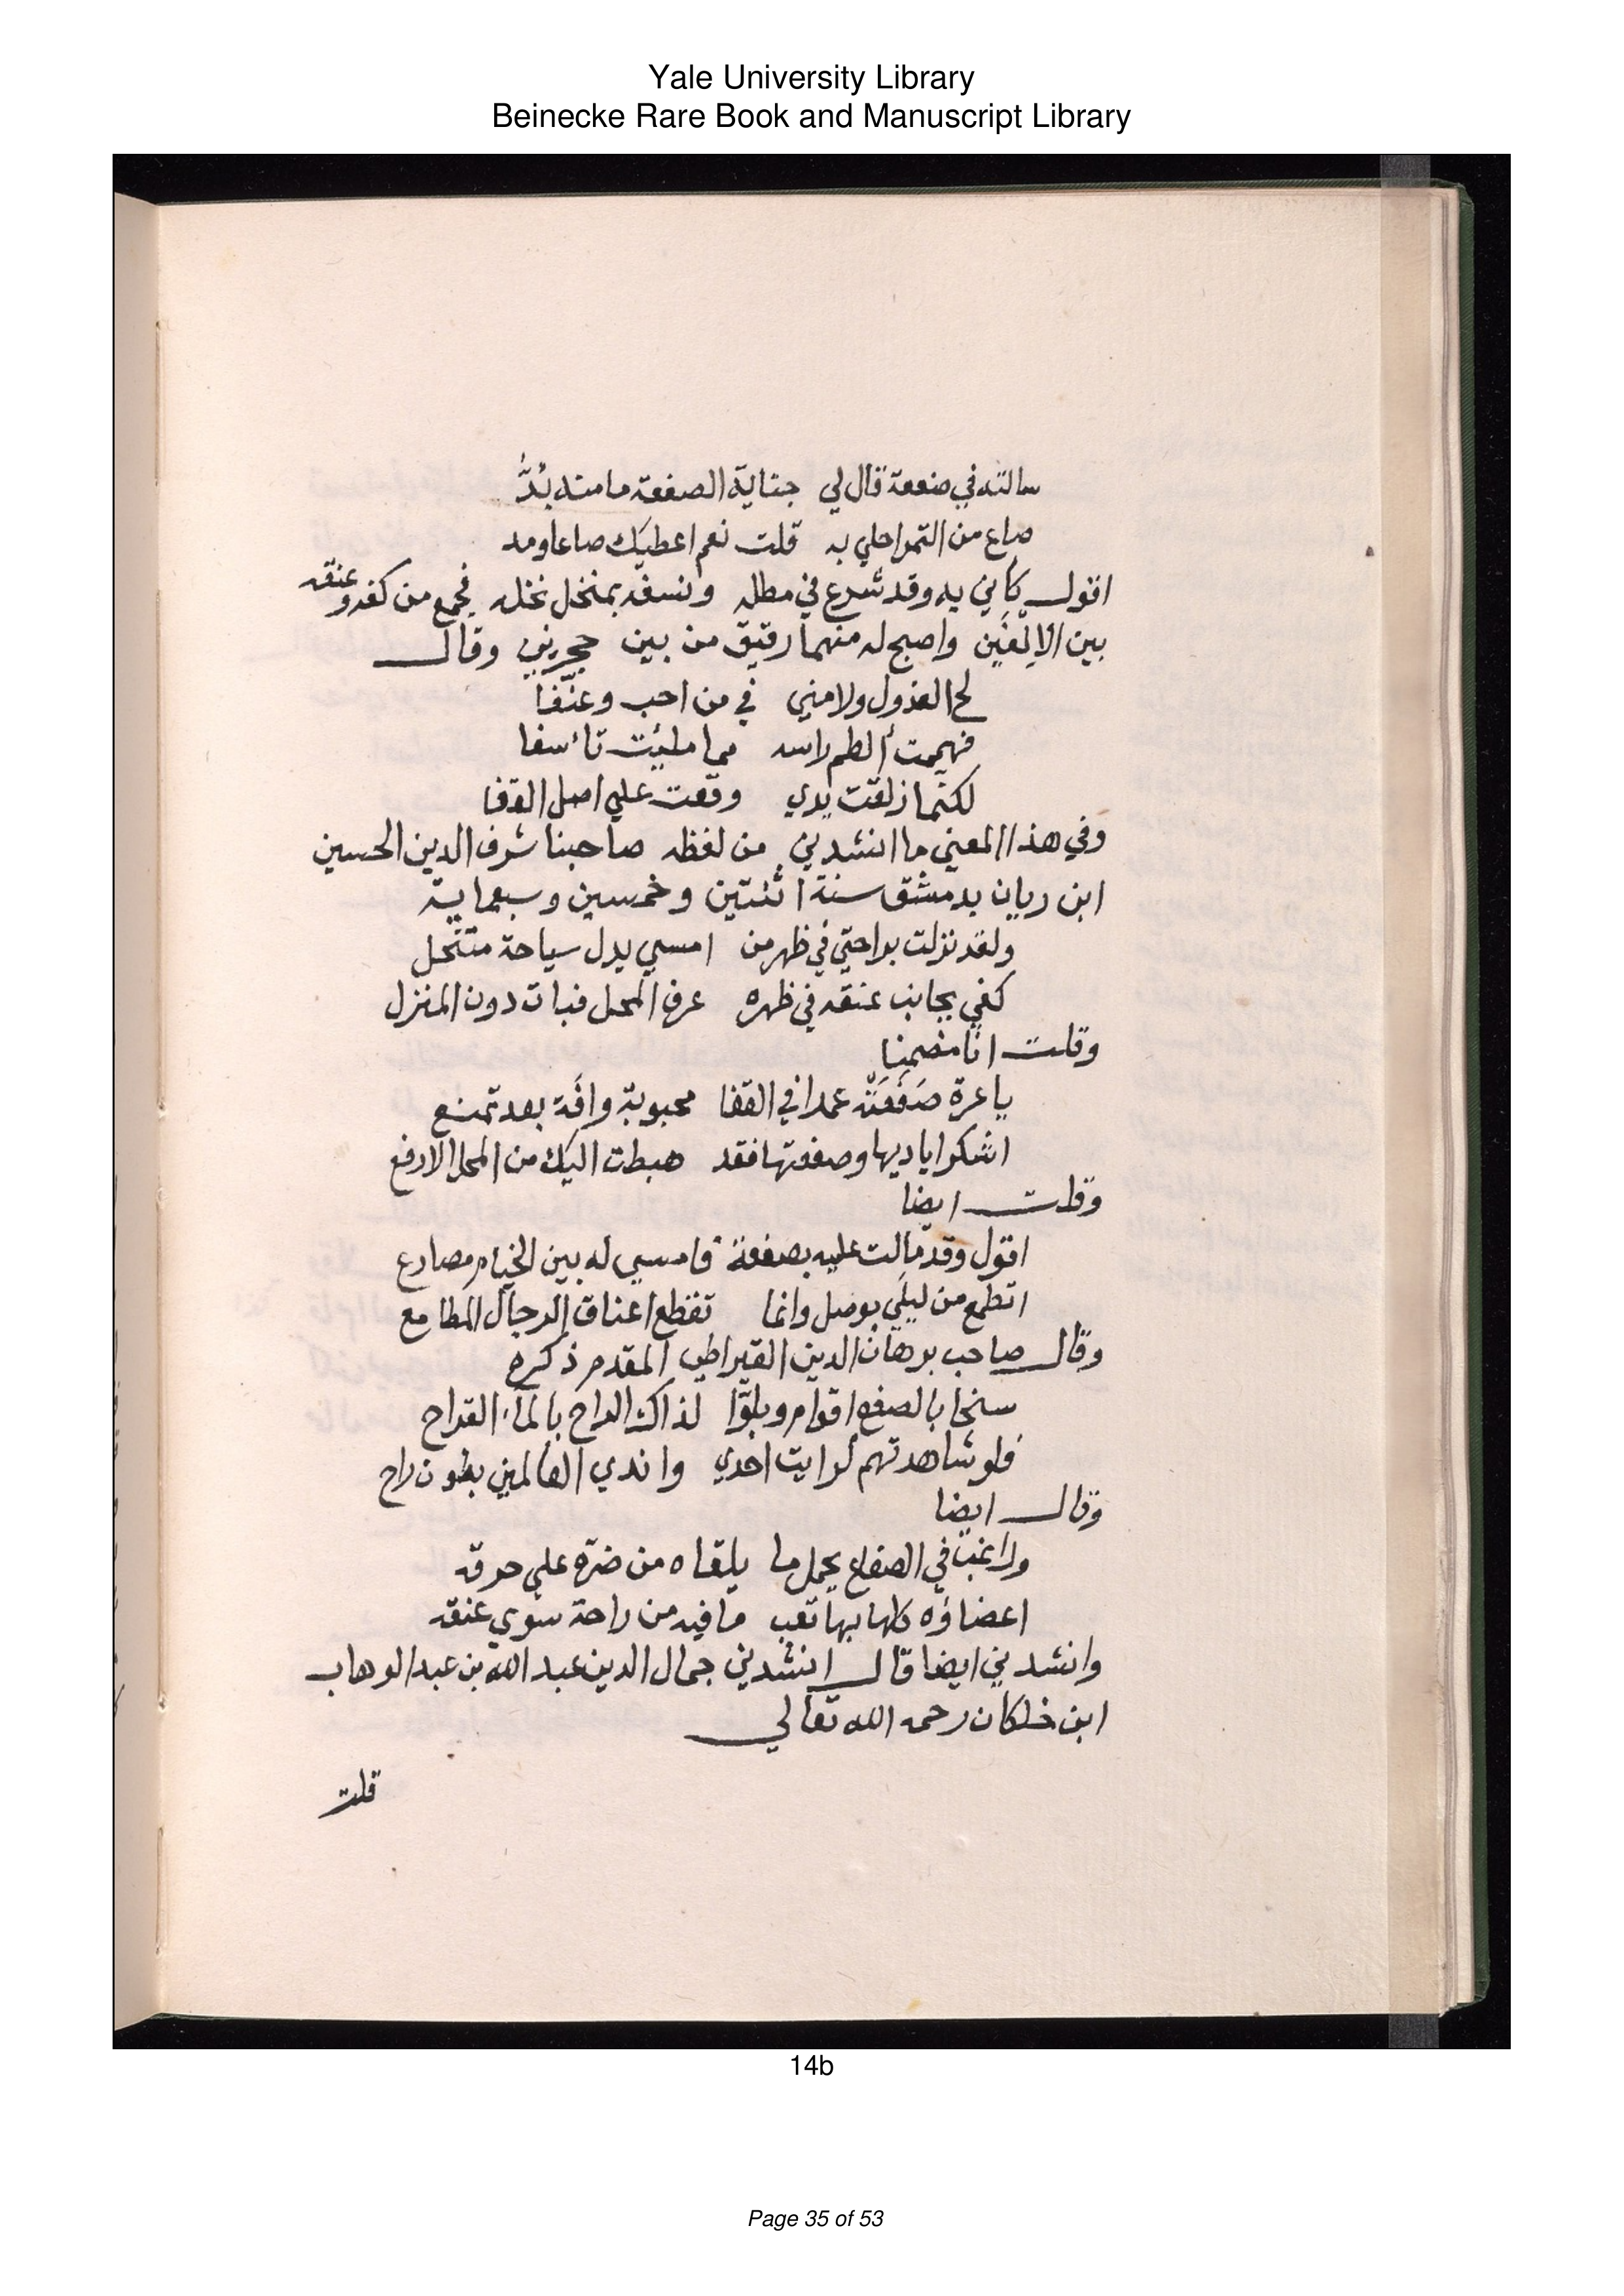 Yale University Library
Beinecke Rare Book and Manuscript Library
سالته في صفعة قال لي جناية الصفعة ما منه بُدُّ
صاع من التمر احلي به قلت نعم اعطيك صاعا ومد
اقول كاني به وقد شرع في مطله ونسفه بمنخل نخله فجمع من كفه وعنقه
بين الاِلفَين واصبح له منهما رقيق من بين حجرين وقال
لح العذول ولامني في من احب وعنّفا
فهممت ألطم راسه مما مليت تاسفا
لكنما زلقت يدي وقعت علي اصل القفا
وفي هذا المعني ما انشدني من لفظه صاحبنا شرف الدين الحسين
ابن ريان بدمشق سنة اثنتين وخمسين وسبعماية
ولقد نزلت براحتي في ظهر من امسي يدل سياحة متنحل
كفي بجانب عنقه في ظهره عرف المحل فبات دون المنزل
وقلت انا مضمنا
يا عرة صَفَعَتْه عمدا في القفا محبوبة وافَة بعد تمنع
اشكر اياديها وصفعتها فقد هبطت اليك من المحل الارفع
وقلت ايضا
اقول وقد مالت عليه بصفعة فامسي له بين الخيام مصارع
اتطمع من ليلي بوصل وانما تقطع اعناق الرجال المطامع
وقال صاحب برهان الدين القيراطي المقدم ذكره
سخا بالصفع اقوام وبلوّا لذاك الراح بالماء القراح
فلو شاهدتهم لرايت احدي واندي العالمين بطون راح
وقال ايضا
وراغب في الصفاع يحمل ما يلقاه من ضرّه علي حرقه
اعضاؤه كلها بها تعب ما فيه من راحة سوي عنقه
وانشدني ايضا قال انشدني جمال الدين عبد الله بن عبد الوهاب
ابن خلكان رحمه الله تعالي
قلت
14b
Page 35 of 53